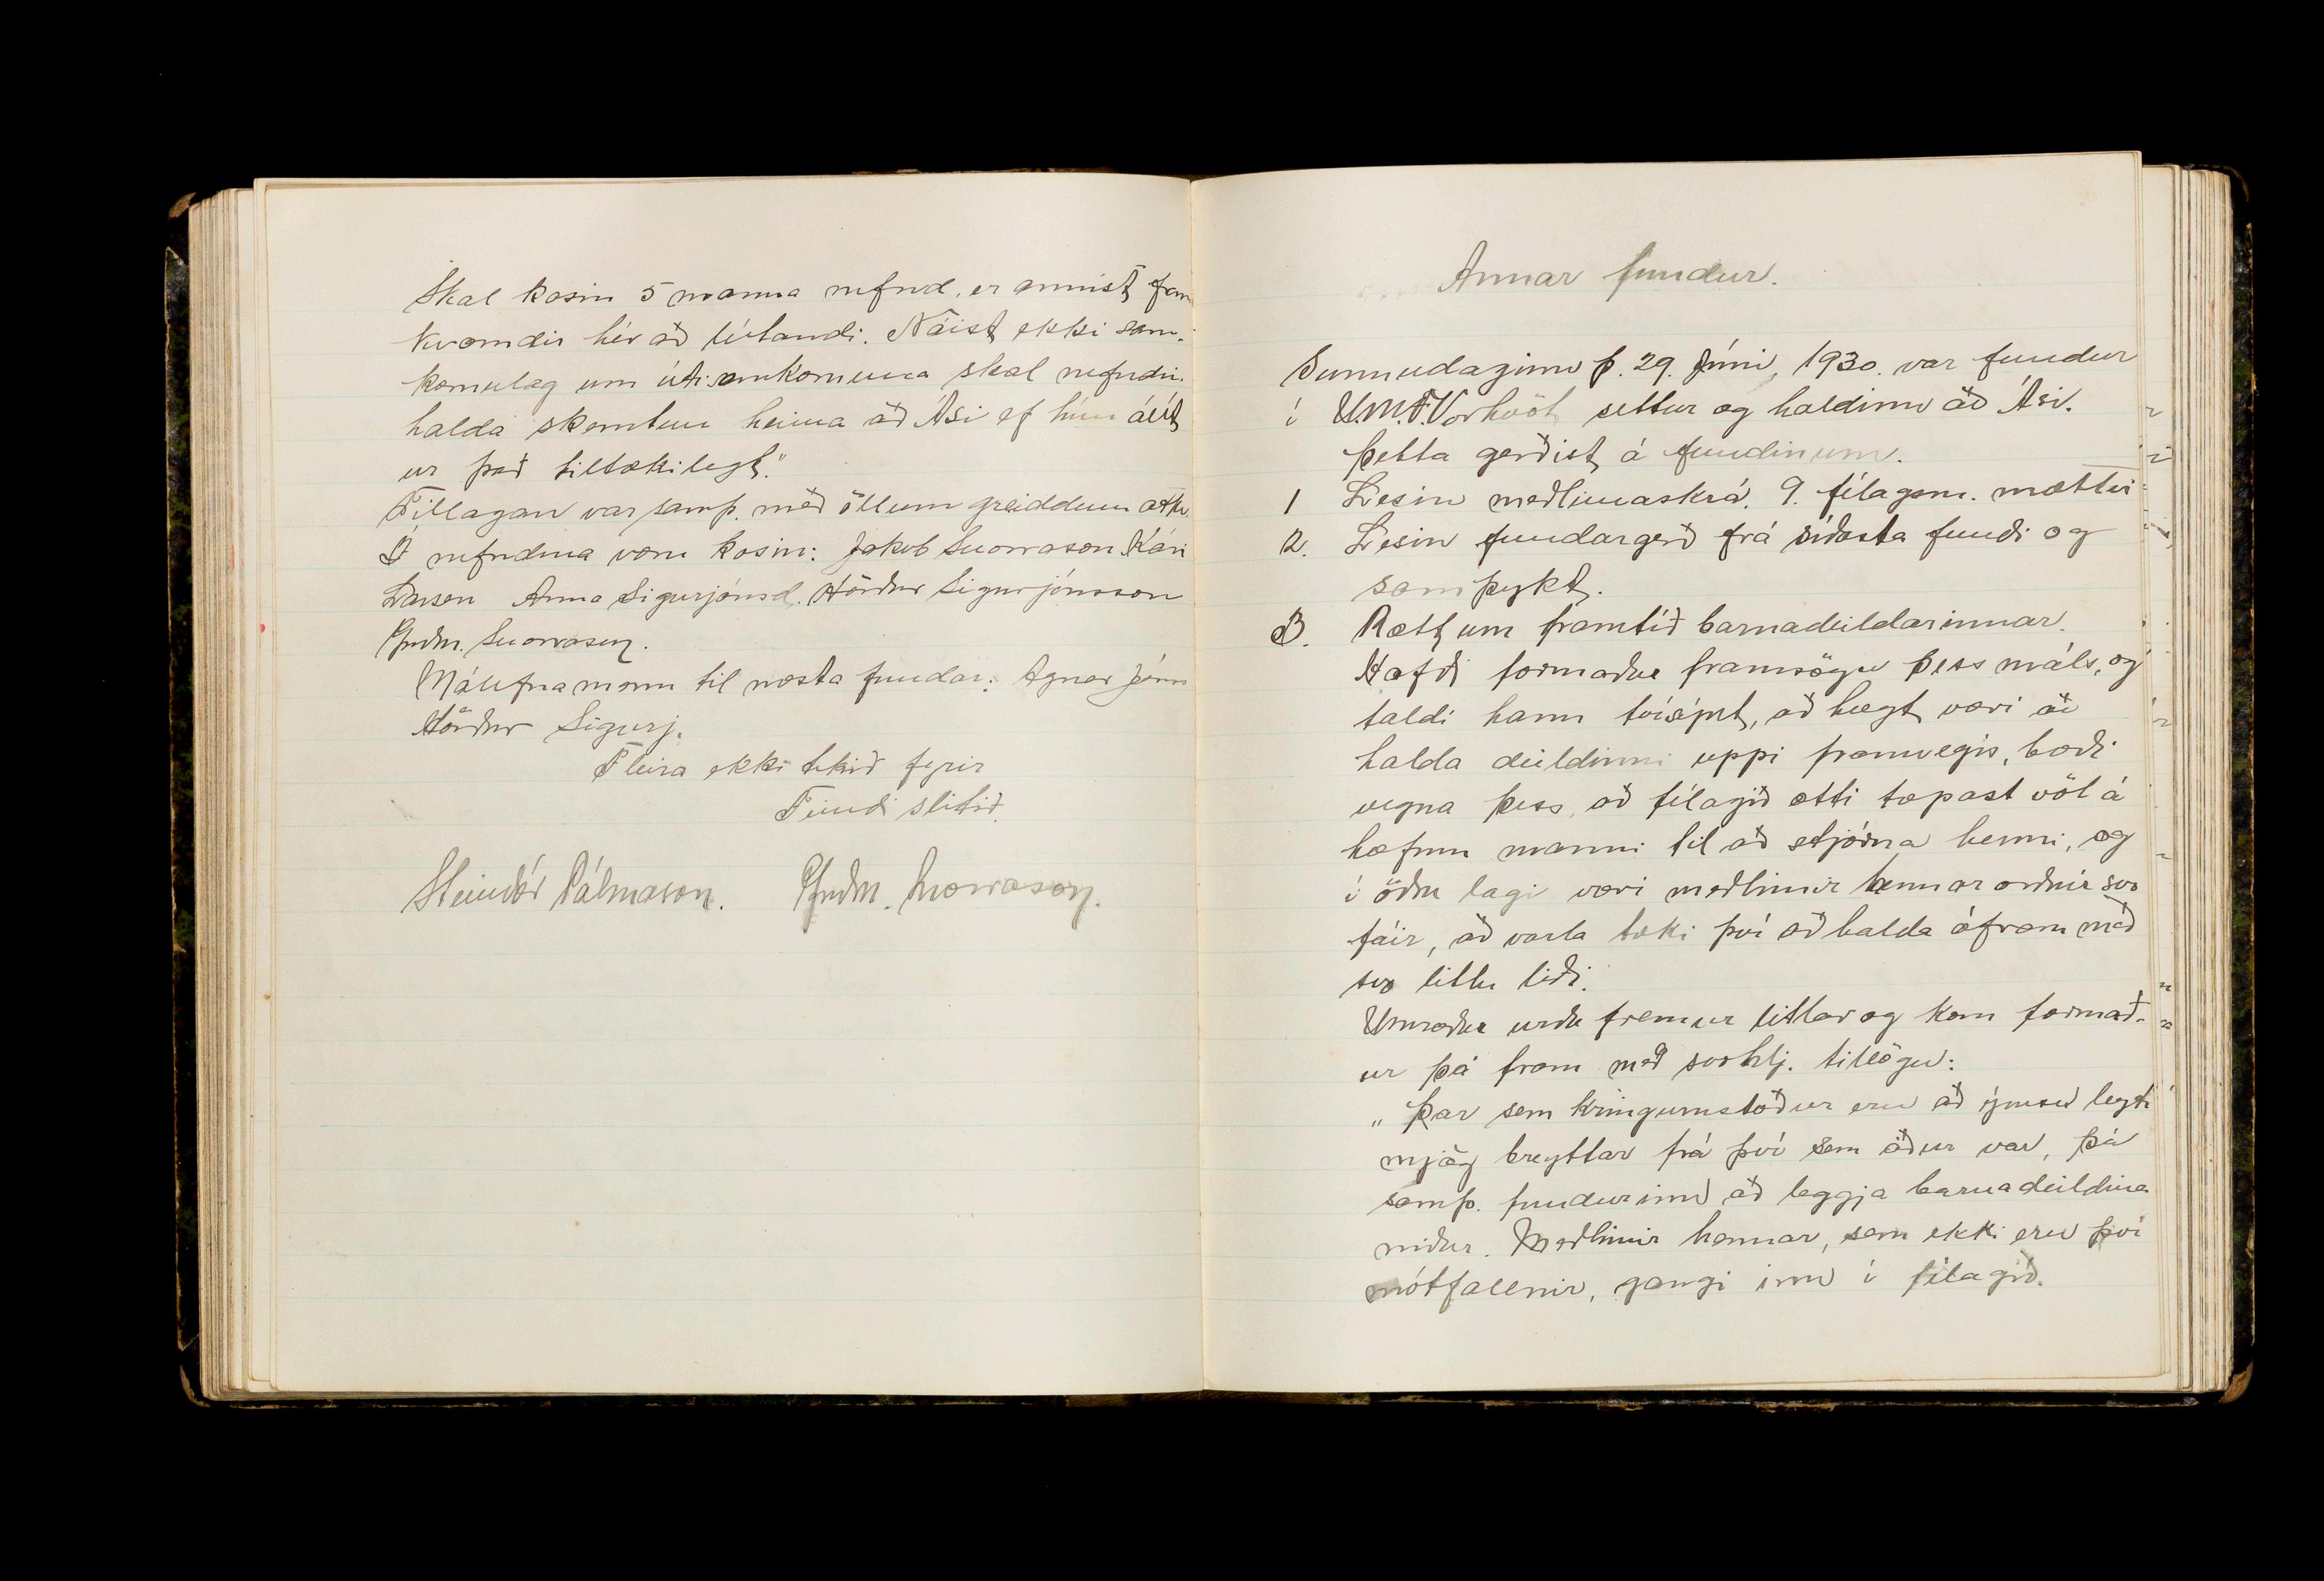 Skal kosin 5 manna nefnd, er annist fram
kvæmdir hér að lútandi. Náist ekki sam-
komulag um útisamkomuna skal nefndin
halda skemtun heima að Ási ef hún álít
ur það tiltækilegt."
Tillagan var samþ. með öllum greiddum atkv.
Í nefndina voru kosin: Jakob Snorrason Kári
Larsen Anna Sigurjónsd. Hörður Sigurjónsson
Guðm. Snorrason.
Málefnamenn til næsta fundar: Agnar Jóns
Hörður Sigurj.
Fleira ekki tekið fyrir
Fundi slitið.
Steindór Pálmason. Guðm. Snorrason.
Annar fundur.
Sunnudaginn þ. 29. Júní, 1930. var fundur
í U.M.F. Vorhvöt settur og haldinn að Ási.
Þetta gerðist á fundinum.
1 Lesin meðlimaskrá. 9. félagsm. mættir
2. Lesin fundargerð frá síðasta fundi og
samþykt.
3. Rætt um framtíð barnadeildarinnar.
Hafði formaður framsögu þess máls, og
taldi hann tvísýnt, að hægt væri að
halda deildinni uppi framvegis, bæði
vegna þess, að félagið ætti tæpast völ á
hæfum manni til að stjórna henni, og
í öðru lagi væri meðlimir hennar orðnir svo
fáir, að varla tæki því að halda áfram með
svo litlu liði.
Umræður urðu fremur litlar og kom formað-
ur þá fram með svohlj. tillögu:
„Þar sem kringumstöður eru að ýmsu leyti
mjög breyttar frá því sem áður var, þá
samþ. fundurinn að leggja barnadeildina
niður. Meðlimir hennar, sem ekki eru því
mótfallnir, gangi inn í félagið.